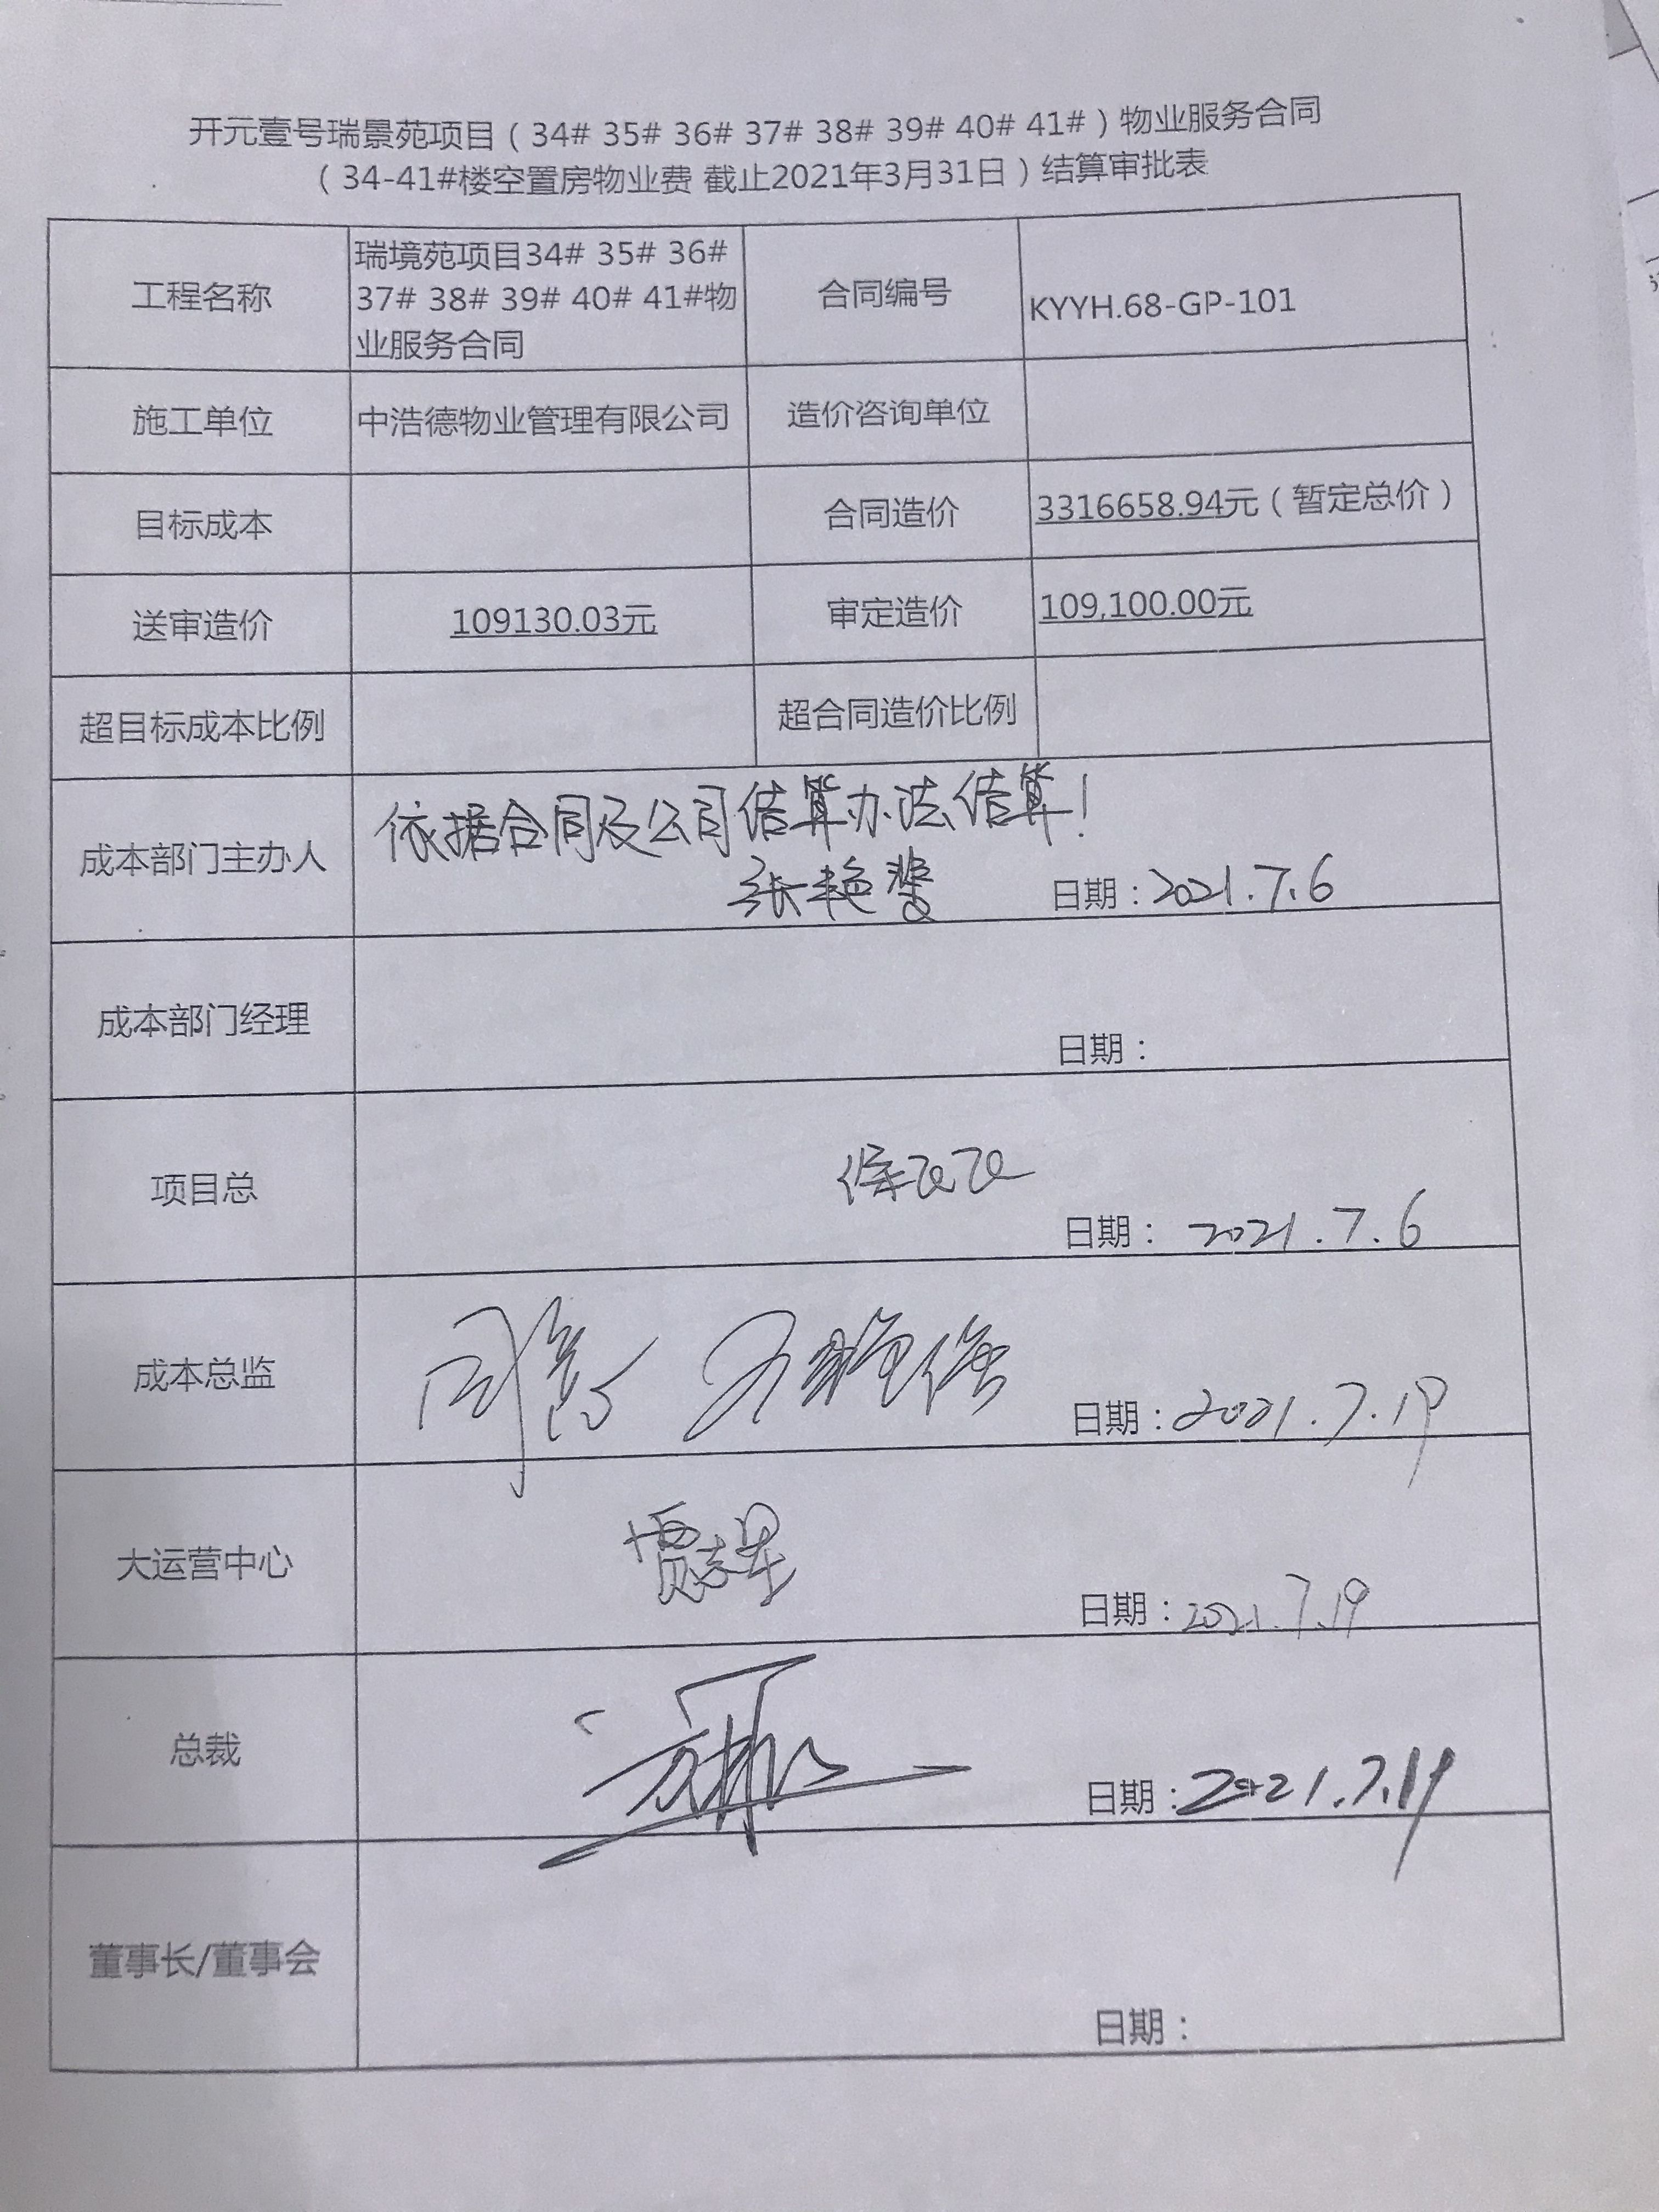 开元壹号瑞景苑项目（34# 35# 36# 37# 38# 39# 40# 41#）物业服务合同
（34-41#楼空置房物业费 截止2021年3月31日）结算审批表
工程名称
瑞境苑项目34# 35# 36#
37# 38# 39# 40# 41#物
业服务合同
合同编号
KYYH.68-GP-101
施工单位
中浩德物业管理有限公司
造价咨询单位
目标成本
合同造价
3316658.94元（暂定总价）
送审造价
109130.03元
审定造价
109,100.00元
超目标成本比例
超合同造价比例
成本部门主办人
依据合同及公司结算办法结算！
张艳
日期：2021.7.6
成本部门经理
日期：
项目总
日期：2021.7.6
成本总监
日期：2021.7.19
大运营中心
贾志星
日期：2021.7.19
总裁
日期：2021.7.19
董事长/董事会
日期：